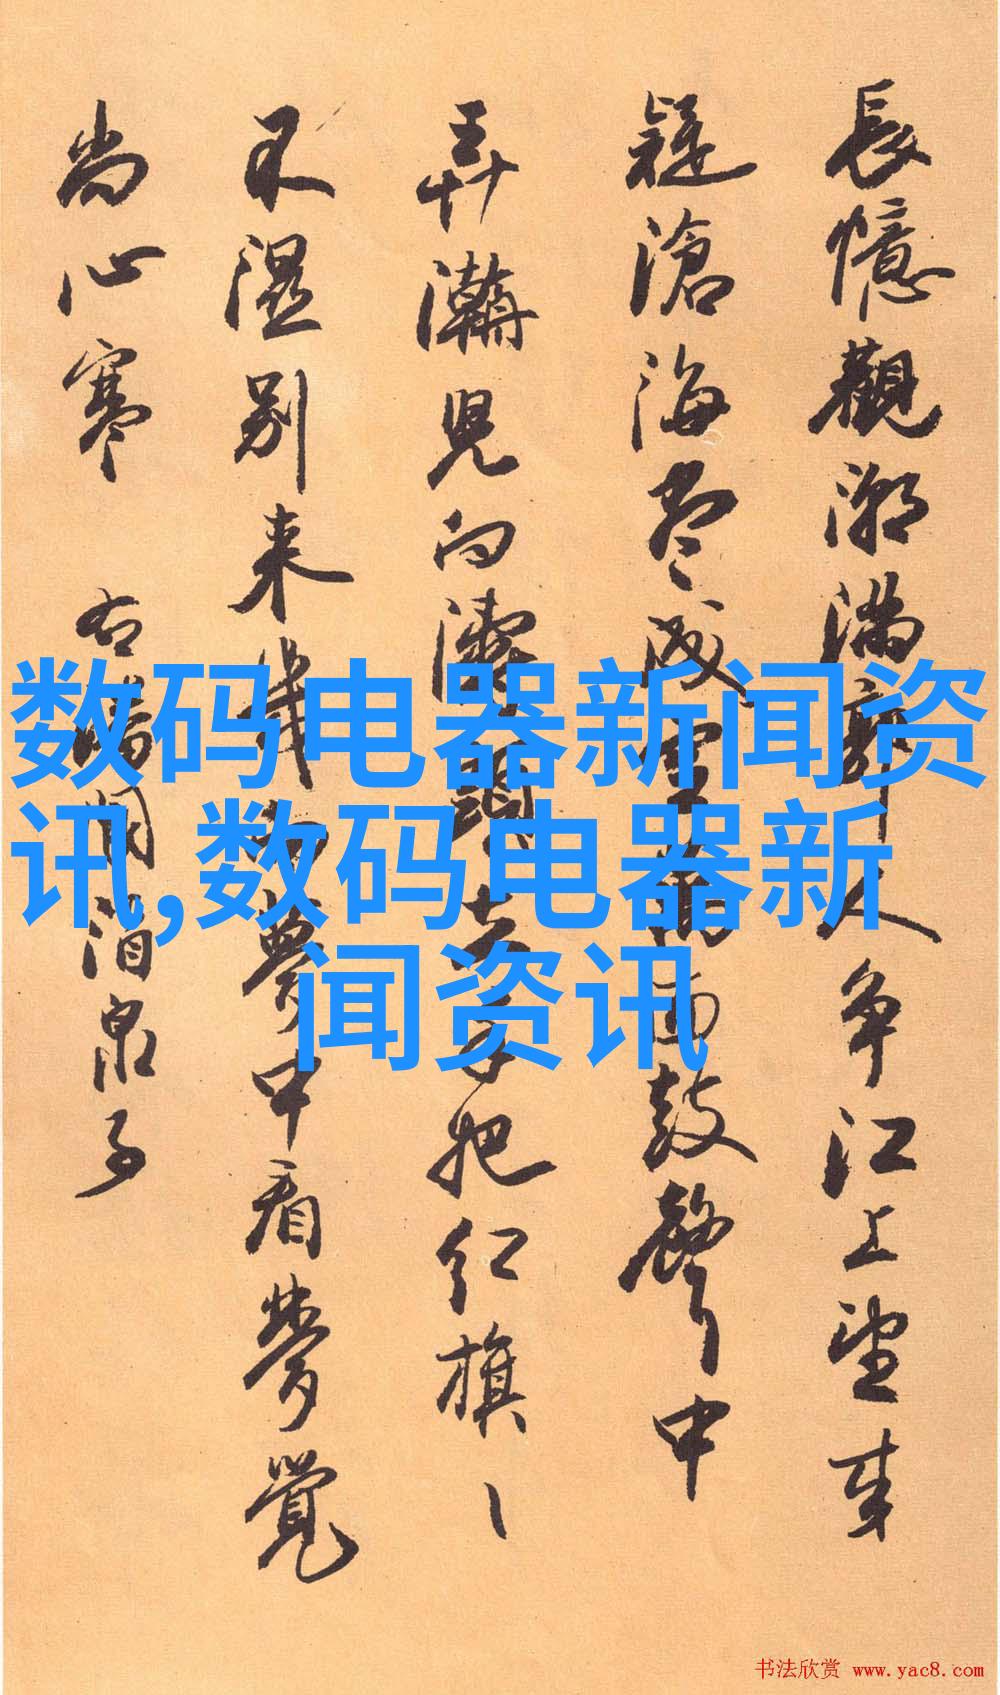 長憶觀潮滿郭人争江上望来
疑滄海尽成空萬面鼓聲中
弄潮兒向濤頭立手把红旗ヽ
不濕别来幾向夢中看夢覺
尚心寒 右潘閬酒泉子
数码电器新闻资
讯,数码电器新
闻资讯
书法欣赏 www.yac8.com